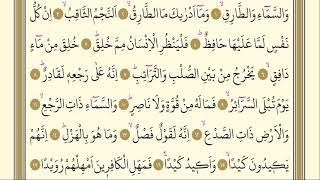 وَالسَّمَٓاءِ وَالطَّارِقِۙ ﴿١﴾ وَمَٓا اَدْرٰيكَ مَا الطَّارِقُۙ ﴿٢﴾ اَلنَّجْمُ الثَّاقِبُۙ ﴿٣﴾ اِنْ كُلُّ
نَفْسٍ لَمَّا عَلَيْهَا حَافِظٌۜ ﴿٤﴾ فَلْيَنْظُرِ الْاِنْسَانُ مِمَّ خُلِقَۜ ﴿٥﴾ خُلِقَ مِنْ مَٓاءٍ
دَافِقٍۙ ﴿٦﴾ يَخْرُجُ مِنْ بَيْنِ الصُّلْبِ وَالتَّرَٓائِبِۜ ﴿٧﴾ اِنَّهُ عَلٰى رَجْعِه۪ لَقَادِرٌۜ ﴿٨﴾
يَوْمَ تُبْلَى السَّرَٓائِرُۙ ﴿٩﴾ فَمَا لَهُ مِنْ قُوَّةٍ وَلَا نَاصِرٍۜ ﴿١٠﴾ وَالسَّمَٓاءِ ذَاتِ الرَّجْعِۙ ﴿١١﴾
وَالْاَرْضِ ذَاتِ الصَّدْعِۙ ﴿١٢﴾ اِنَّهُ لَقَوْلٌ فَصْلٌۙ ﴿١٣﴾ وَمَا هُوَ بِالْهَزْلِۜ ﴿١٤﴾ اِنَّهُمْ
يَك۪يدُونَ كَيْدًاۙ ﴿١٥﴾ وَاَك۪يدُ كَيْدًاۚ ﴿١٦﴾ فَمَهِّلِ الْكَافِر۪ينَ اَمْهِلْهُمْ رُوَيْدًا ﴿١٧﴾